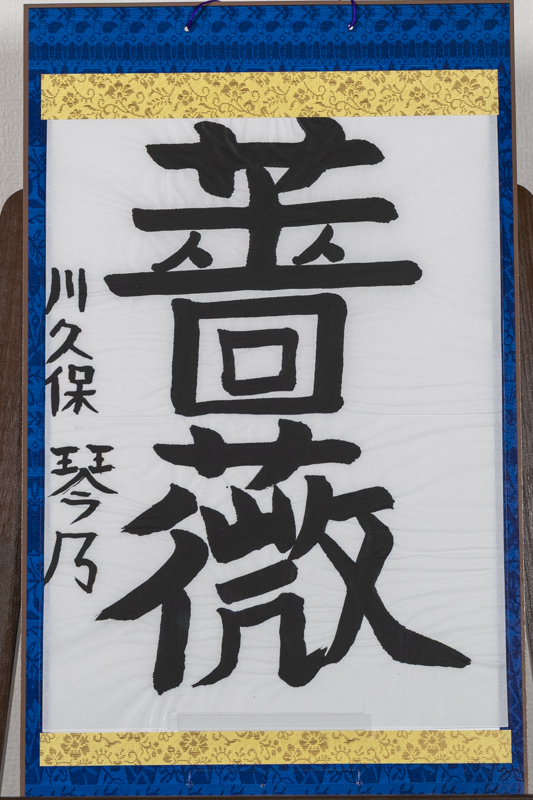 薔薇
川久保 琴乃